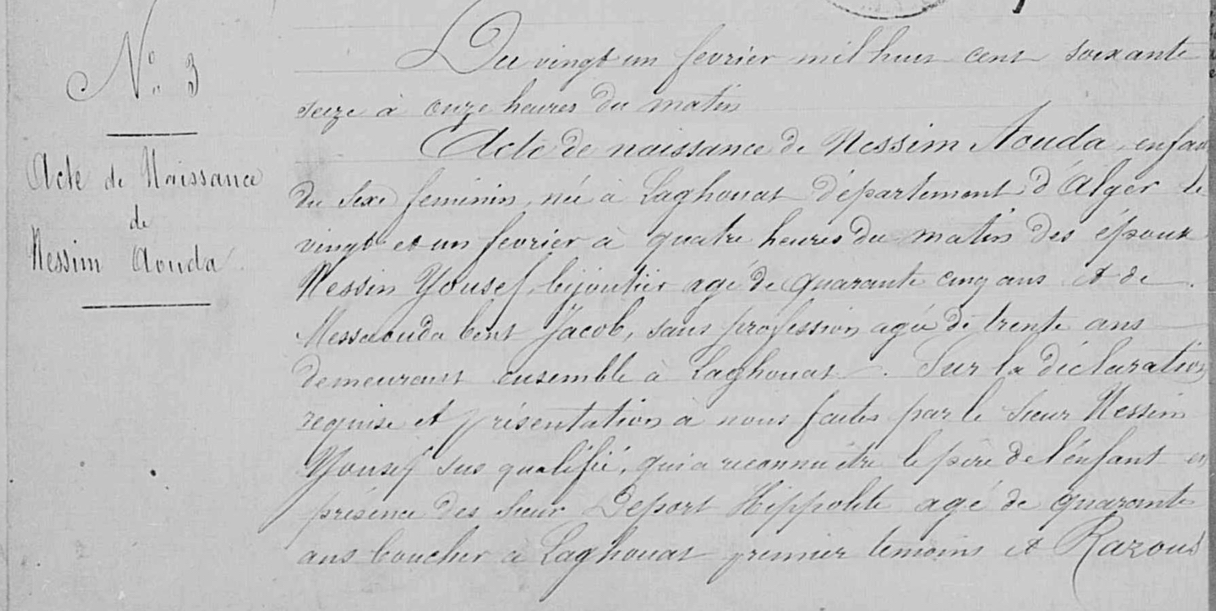 N° 3
Acte de Naissance
de
Nessim Aouda
Du vingt un fevrier mil huit cent soixante
seize à onze heures du matin
Acte de naissance de Nessim Aouda, enfan
du sexe féminin, née à Laghouat département d'Alger le
vingt et un fevrier à quatre heures du matin des époux
Nessim Yousef, bijoutier agé de quarante cinq ans et de
Messaouda bent Jacob, sans profession agée de trente ans
demeurant ensemble à Laghouat. Sur la déclaration
requise et présentation à nous faites par le sieur Nessim
Yousef sus qualifié, qui a reconnu être le père de l'enfant en
présence des sieur Deport Hippolite agé de quarante
ans boucher à Laghouat premier temoins et Razous